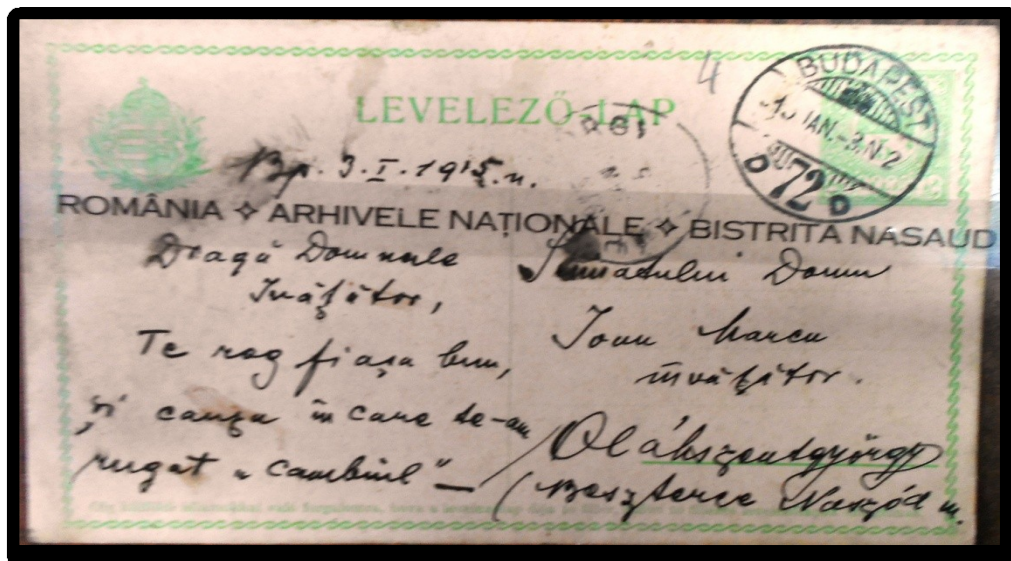 LEVELEZŐ-LAP
4
BUDAPEST
72
D D
Bp. 3.I.1915.n.
ROMÂNIA ✧ ARHIVELE NAȚIONALE ✧ BISTRITA NASAUD
Dragă Domnule
Învățător,
Te rog fi așa bun,
și cauza în care te-am
rugat
Stimatului Domn
Ioan Marcu
învățător.
Oláhszentgyörgy
(Beszterce Naszód m.